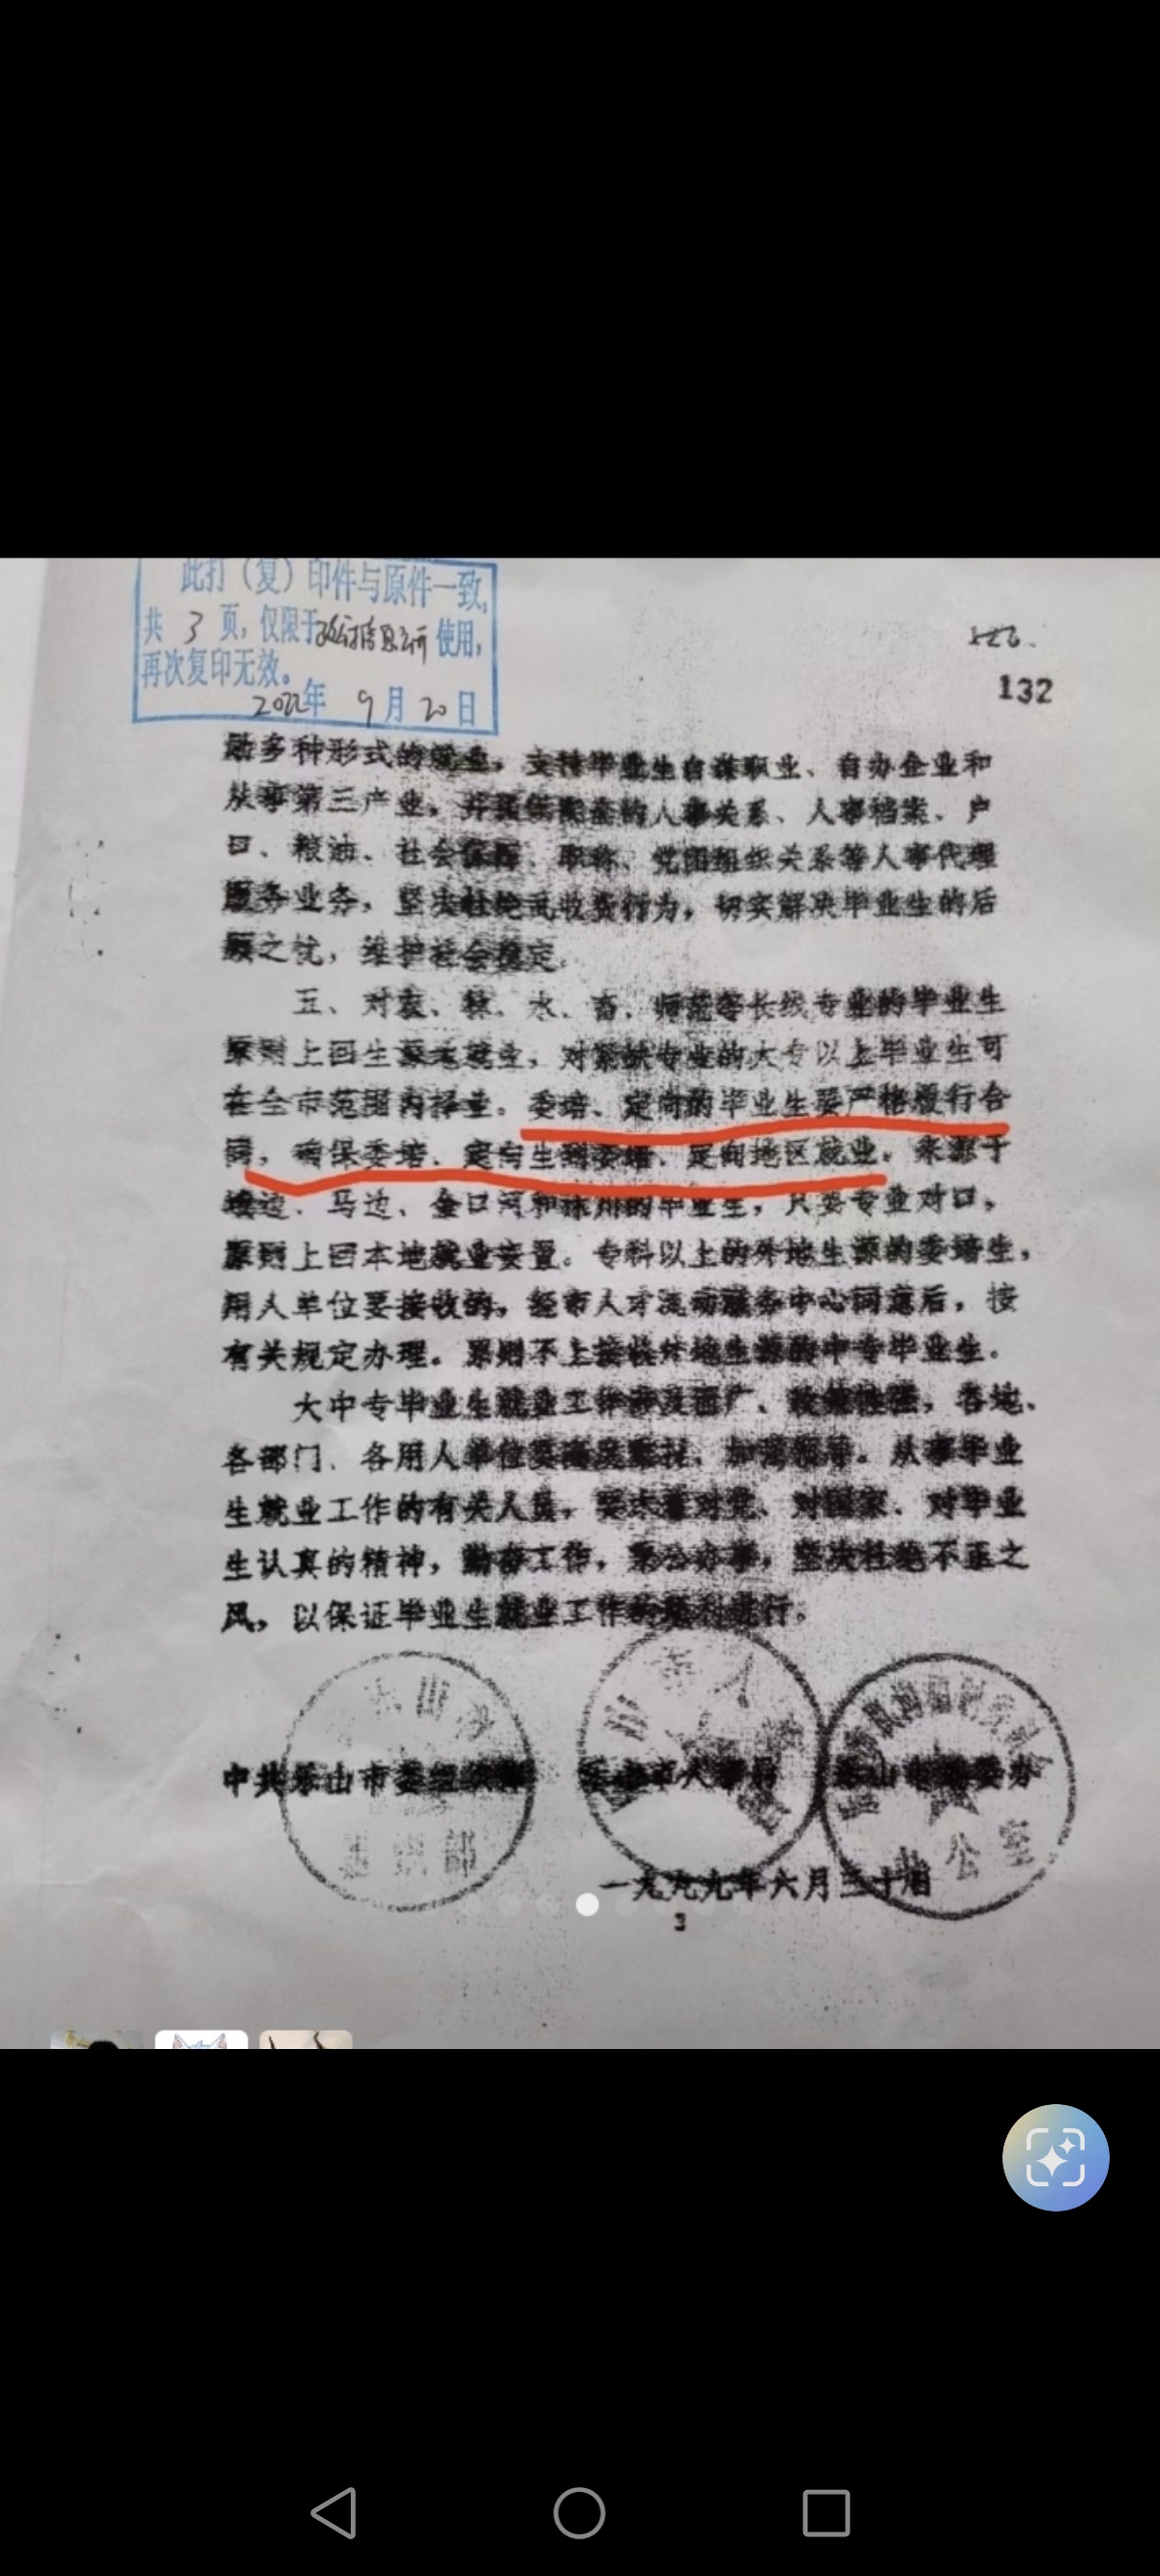 此打（复）印件与原件一致，
共 3 页，仅限于政府信息公开使用，
再次复印无效。
2022年 9月20日
126.
132
励多种形式的就业，支持毕业生自谋职业、自办企业和
从事第三产业，并提供配套的人事关系、人事档案、户
口、粮油、社会保障、职称、党团组织关系等人事代理
服务业务，坚决杜绝乱收费行为，切实解决毕业生的后
顾之忧，维护社会稳定。
五、对农、林、水、畜、师范等长线专业的毕业生
原则上回生源地就业，对紧缺专业的大专以上毕业生可
在全市范围内择业。委培、定向的毕业生要严格履行合
同，确保委培、定向生到委培、定向地区就业。来源于
峨边、马边、金口河和沐川的毕业生，只要专业对口，
原则上回本地就业安置。专科以上的外地生源的委培生，
用人单位要接收的，经市人才流动服务中心同意后，按
有关规定办理。原则不上接收外地生源的中专毕业生。
大中专毕业生就业工作涉及面广、政策性强，各地、
各部门、各用人单位要高度重视，加强领导。从事毕业
生就业工作的有关人员，要本着对党、对国家、对毕业
生认真的精神，勤奋工作，秉公办事，坚决杜绝不正之
风，以保证毕业生就业工作的顺利进行。
中共乐山市委组织部 乐山市人事局 乐山市
委办
公室
组织部
一九九九年六月三十日
3